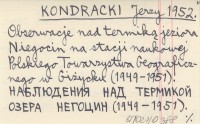 KONDRACKI Jerzy 1952.
Obserwacje nad termiką jeziora
Niegocin na stacji naukowej
Polskiego Towarzystwa Geograficz-
nego w Giżycku (1949-1951).
НАБЛЮДЕНИЯ НАД ТЕРМИКОЙ
ОЗЕРА НЕГОЦИН (1949-1951).